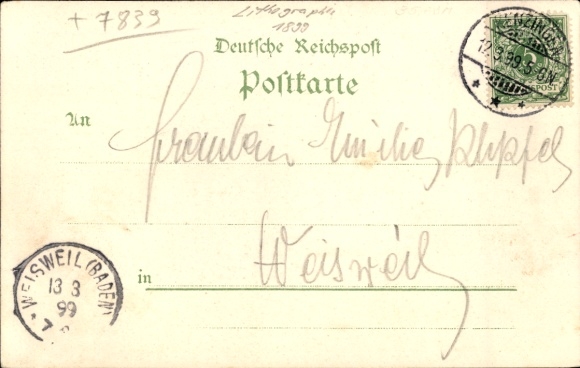 + 7839
Lithographie
1899
Deutsche Reichspost
Postkarte
ENZINGEN
12.3.99.5-6N.
POST
An
Fräulein Emilie Klipfel
in Weisweil
WEISWEIL (BADEN)
13 3
99
7